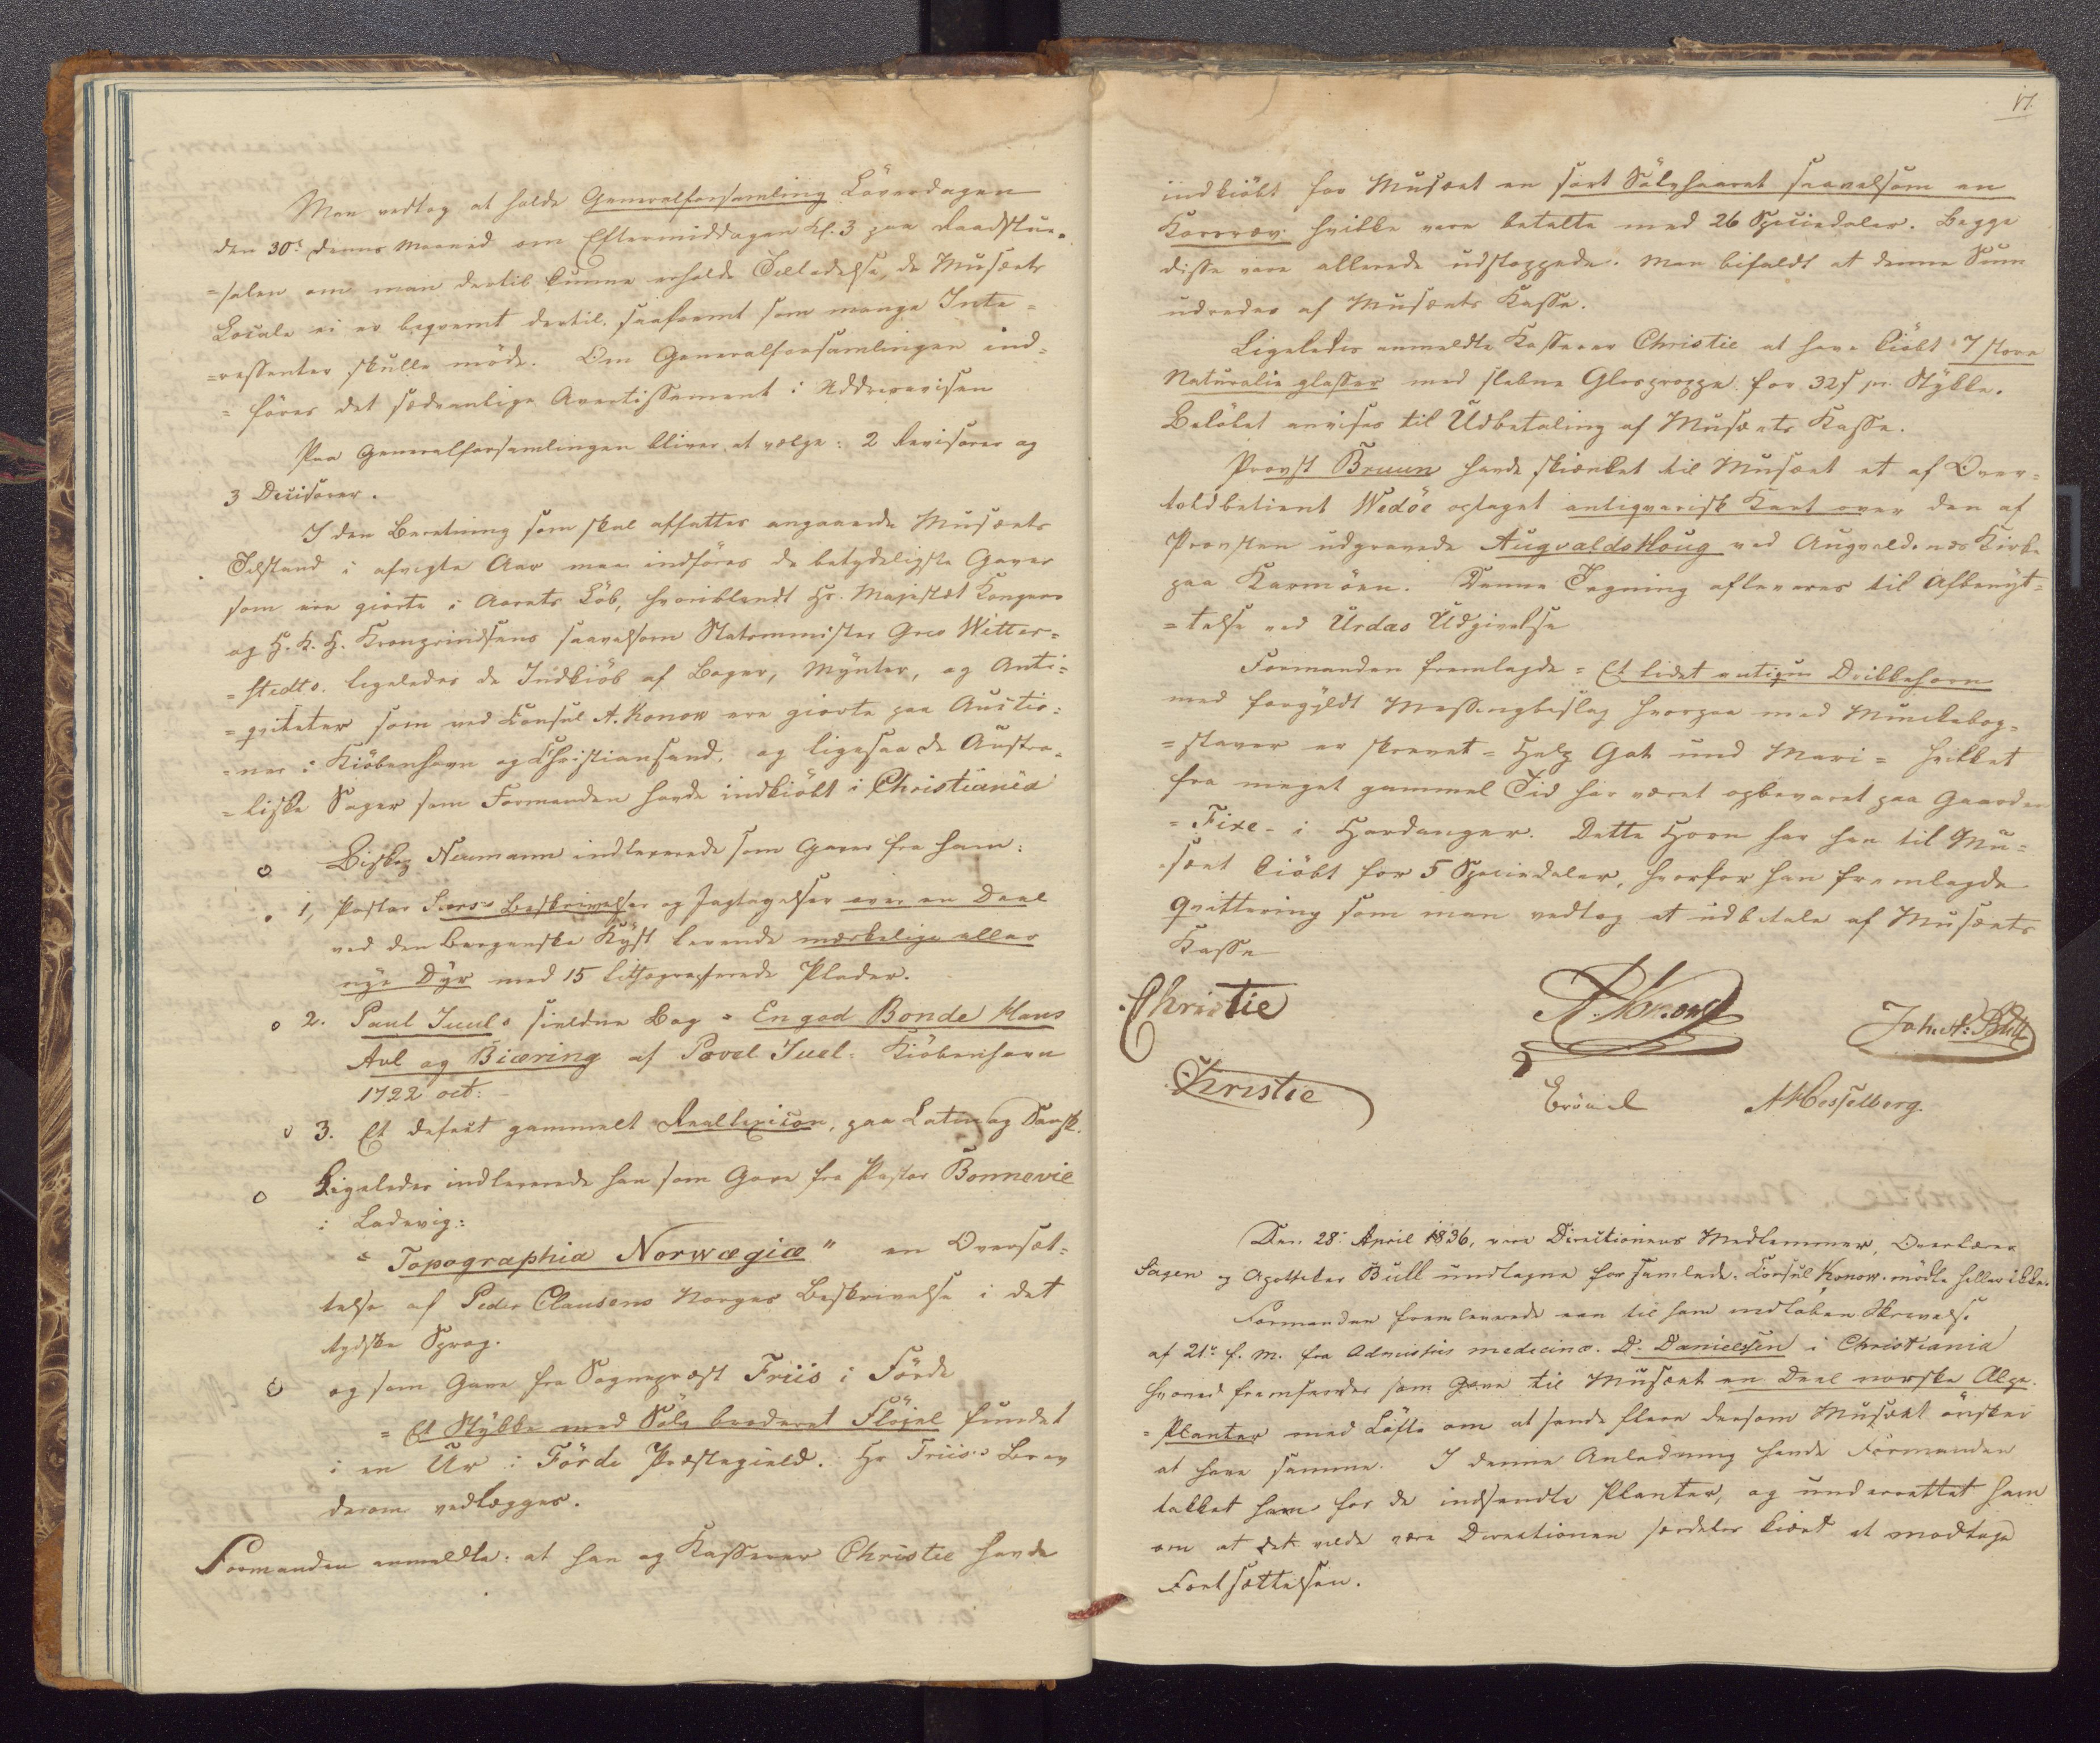 Man vedtog at holde Generalforsamling Löverdagen
den 30te denne Maaned om Eftermiddagen Kl. 3 paa Raadstue-
=salen om man dertil kunne erholde Tilladelse, da Musæets
Locale ei er beqvemt dertil, saafremt som mange Inte=
=ressenter skulle möde. Om Generalforsamlingen ind=
=föres det sædvanlige Avertissement i Addresseavisen
Paa Generalforsamlingen bliver at vælge: 2 Revisorer og
3 Decisorer.
I den Beretning som skal affattes angaaende Musæets
Tilstand i afvigte Aar maa indföres de betydeligste Gaver
som ere giorte i Aarets Löb, hvoriblandt Hs. Majestæt Kongens
og H. K. H. Kronprindsens saavelsom Statsminister Grev Wetter=
=stedts. ligeledes de Indkiöb af Bøger, Mynter, og Anti=
=qviteter som ved Consul A. Konow ere giorte paa Auctio=
=ner i Kiöbenhavn og Christiansand, og ligesaa de Austra=
=liske Sager som Formanden havde indkiöbt i Christiania
o Biskop Neumann indleverede som Gaver fra ham:
1, Pastor Sars's Beskrivelser og Jagtagelser over en Deel
ved den Bergenske Kyst levende mærkelige eller
nye Dyr med 15 lithographerede Plader.
o 2. Paul Juuls sieldne Bog = En god Bonde Hans
Avl og Biæring af Povel Juel. Kiöbenhavn
1722 oct:
o 3. Et defect gammelt Reallexicon, paa Latin og Dansk.
o Ligeledes indleverede han som Gave fra Pastor Bonnevie
i Ladevig:
"Topographia Norwægiæ" en Oversæt=
telse af Peder Clausens Norges Beskrivelse i det
tydske Sprog.
o og som Gave fra Sogneprest Friis i Förde
= Et Stykke med Sölv broderet Flöjel fundet
i en Ur i Förde Præstegield. Hr Friis's Brev
derom vedlægges.
Formanden anmeldte: at han og Kasserer Christie havde
17.
indkiöbt for Musæet en sort Sölvhaaret saavelsom en
Korsræv. hvilke vare betalte med 26 Speciedaler. Begge
disse vare allerede udstoppede. Man bifaldt at denne Sum
udredes af Musæets Kasse.
Ligeledes anmeldte Kasserer Christie at have kiöbt 7 store
Naturalie glasser med slebne Glaspropper for 32 s pr. Stykke.
Belöbet anvises til Udbetaling af Musæets Kasse.
Provst Bruun havde skiænket til Musæet et af Over=
toldbetient Wedöe optaget antiqvarisk Kart over den af
Provsten udgravede Augvalds Houg ved Augvaldsnes Kirke
paa Karmöen. Denne Tegning afleveres til Afbenyt=
=telse ved Urdas Udgivelse
Formanden fremlagde = Et lidet antiqvt Drikkehorn
med forgyldt Messingbeslag hvorpaa med Munkebog=
=staver er skrevet = Help Got und Mari = hvilket
fra meget gammel Tid har været opbevaret paa Gaarden
= Fixe - i Hardanger. Dette Horn har han til Mu=
=sæet kiöbt for 5 Speciedaler, hvorfor han fremlagde
Qvittering som man vedtog at udbetale af Musæets
Kasse
Christie A. Konow Joh. A: Bull
Christie Hesselberg.
Den 28: April 1836, vare Directionens Medlemmer, Overlærer
Sagen og Apotheker Bull undtagne forsamlede. Consul Konow mödte heller ikke.
Formanden fremleverede een til ham indloben Skrivelse
af 21de f. M. fra medicinæ D. Danielssen i Christiania
hvorved fremsendes som Gave til Musæet en Deel norske Alpe=
=Planter med Löfte om at sende flere dersom Musæet önsker
at have samme. I denne Anledning havde Formanden
takket ham for de indsendte Planter, og underrettet ham
om at det vilde være Directionen særdeles kiært at modtage
Fortsættelsen.